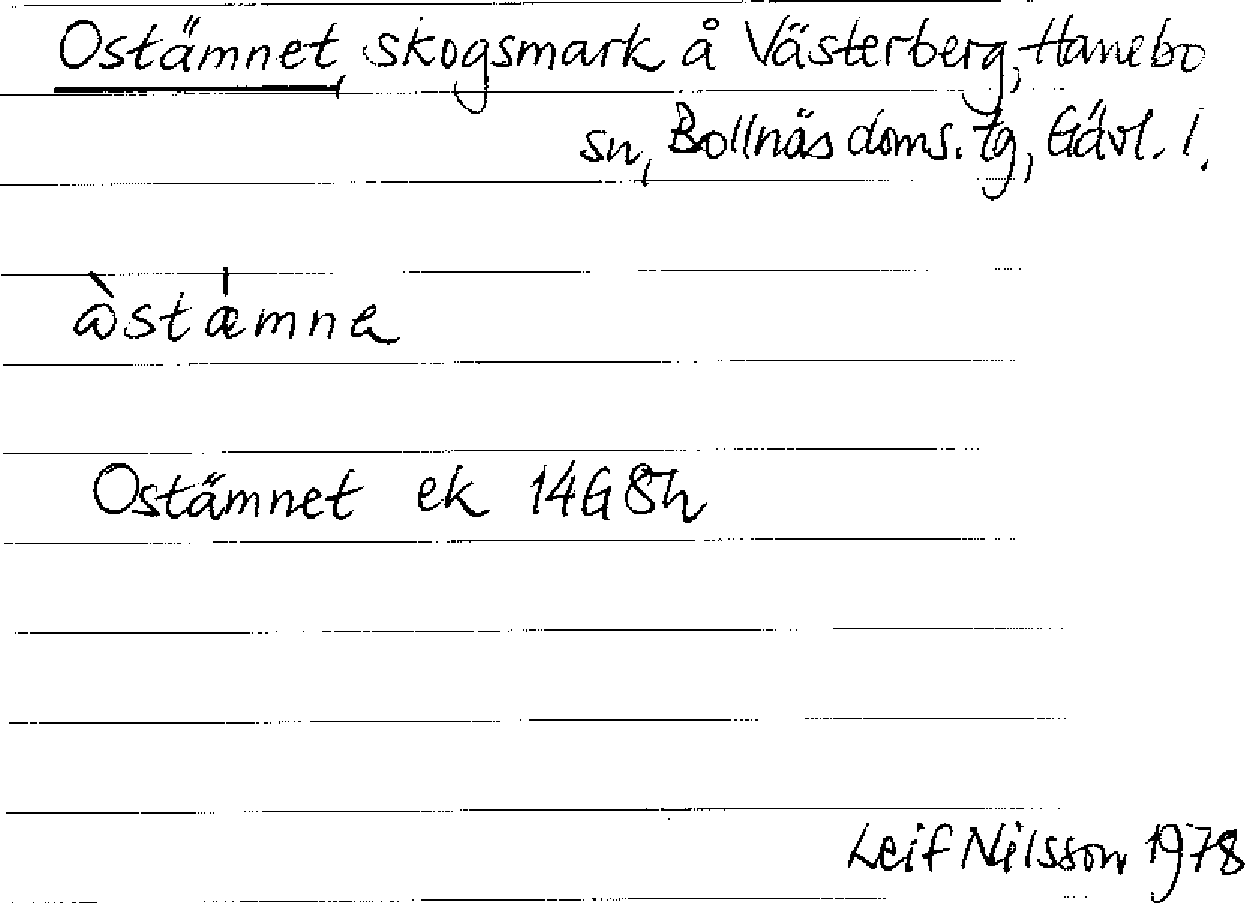 Ostämnet, skogsmark å Västerberg, Hanebo
sn, Bollnäs doms. tg, Gävl. l.
ὼstæ̍mna
Ostämnet ek 14G8h
Leif Nilsson 1978